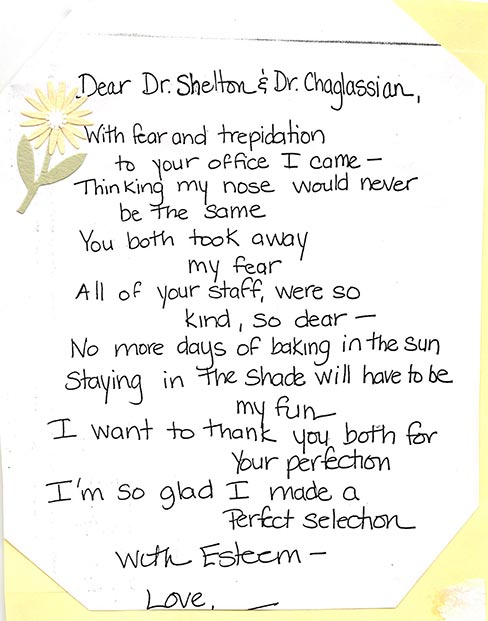 Dear Dr. Shelton & Dr. Chaglassian,
With fear and trepidation
to your office I came –
Thinking my nose would never
be the same
You both took away
my fear
All of your staff, were so
kind, so dear –
No more days of baking in the sun
Staying in the shade will have to be
my fun
I want to thank you both for
Your perfection
I'm so glad I made a
Perfect selection
With Esteem –
Love,